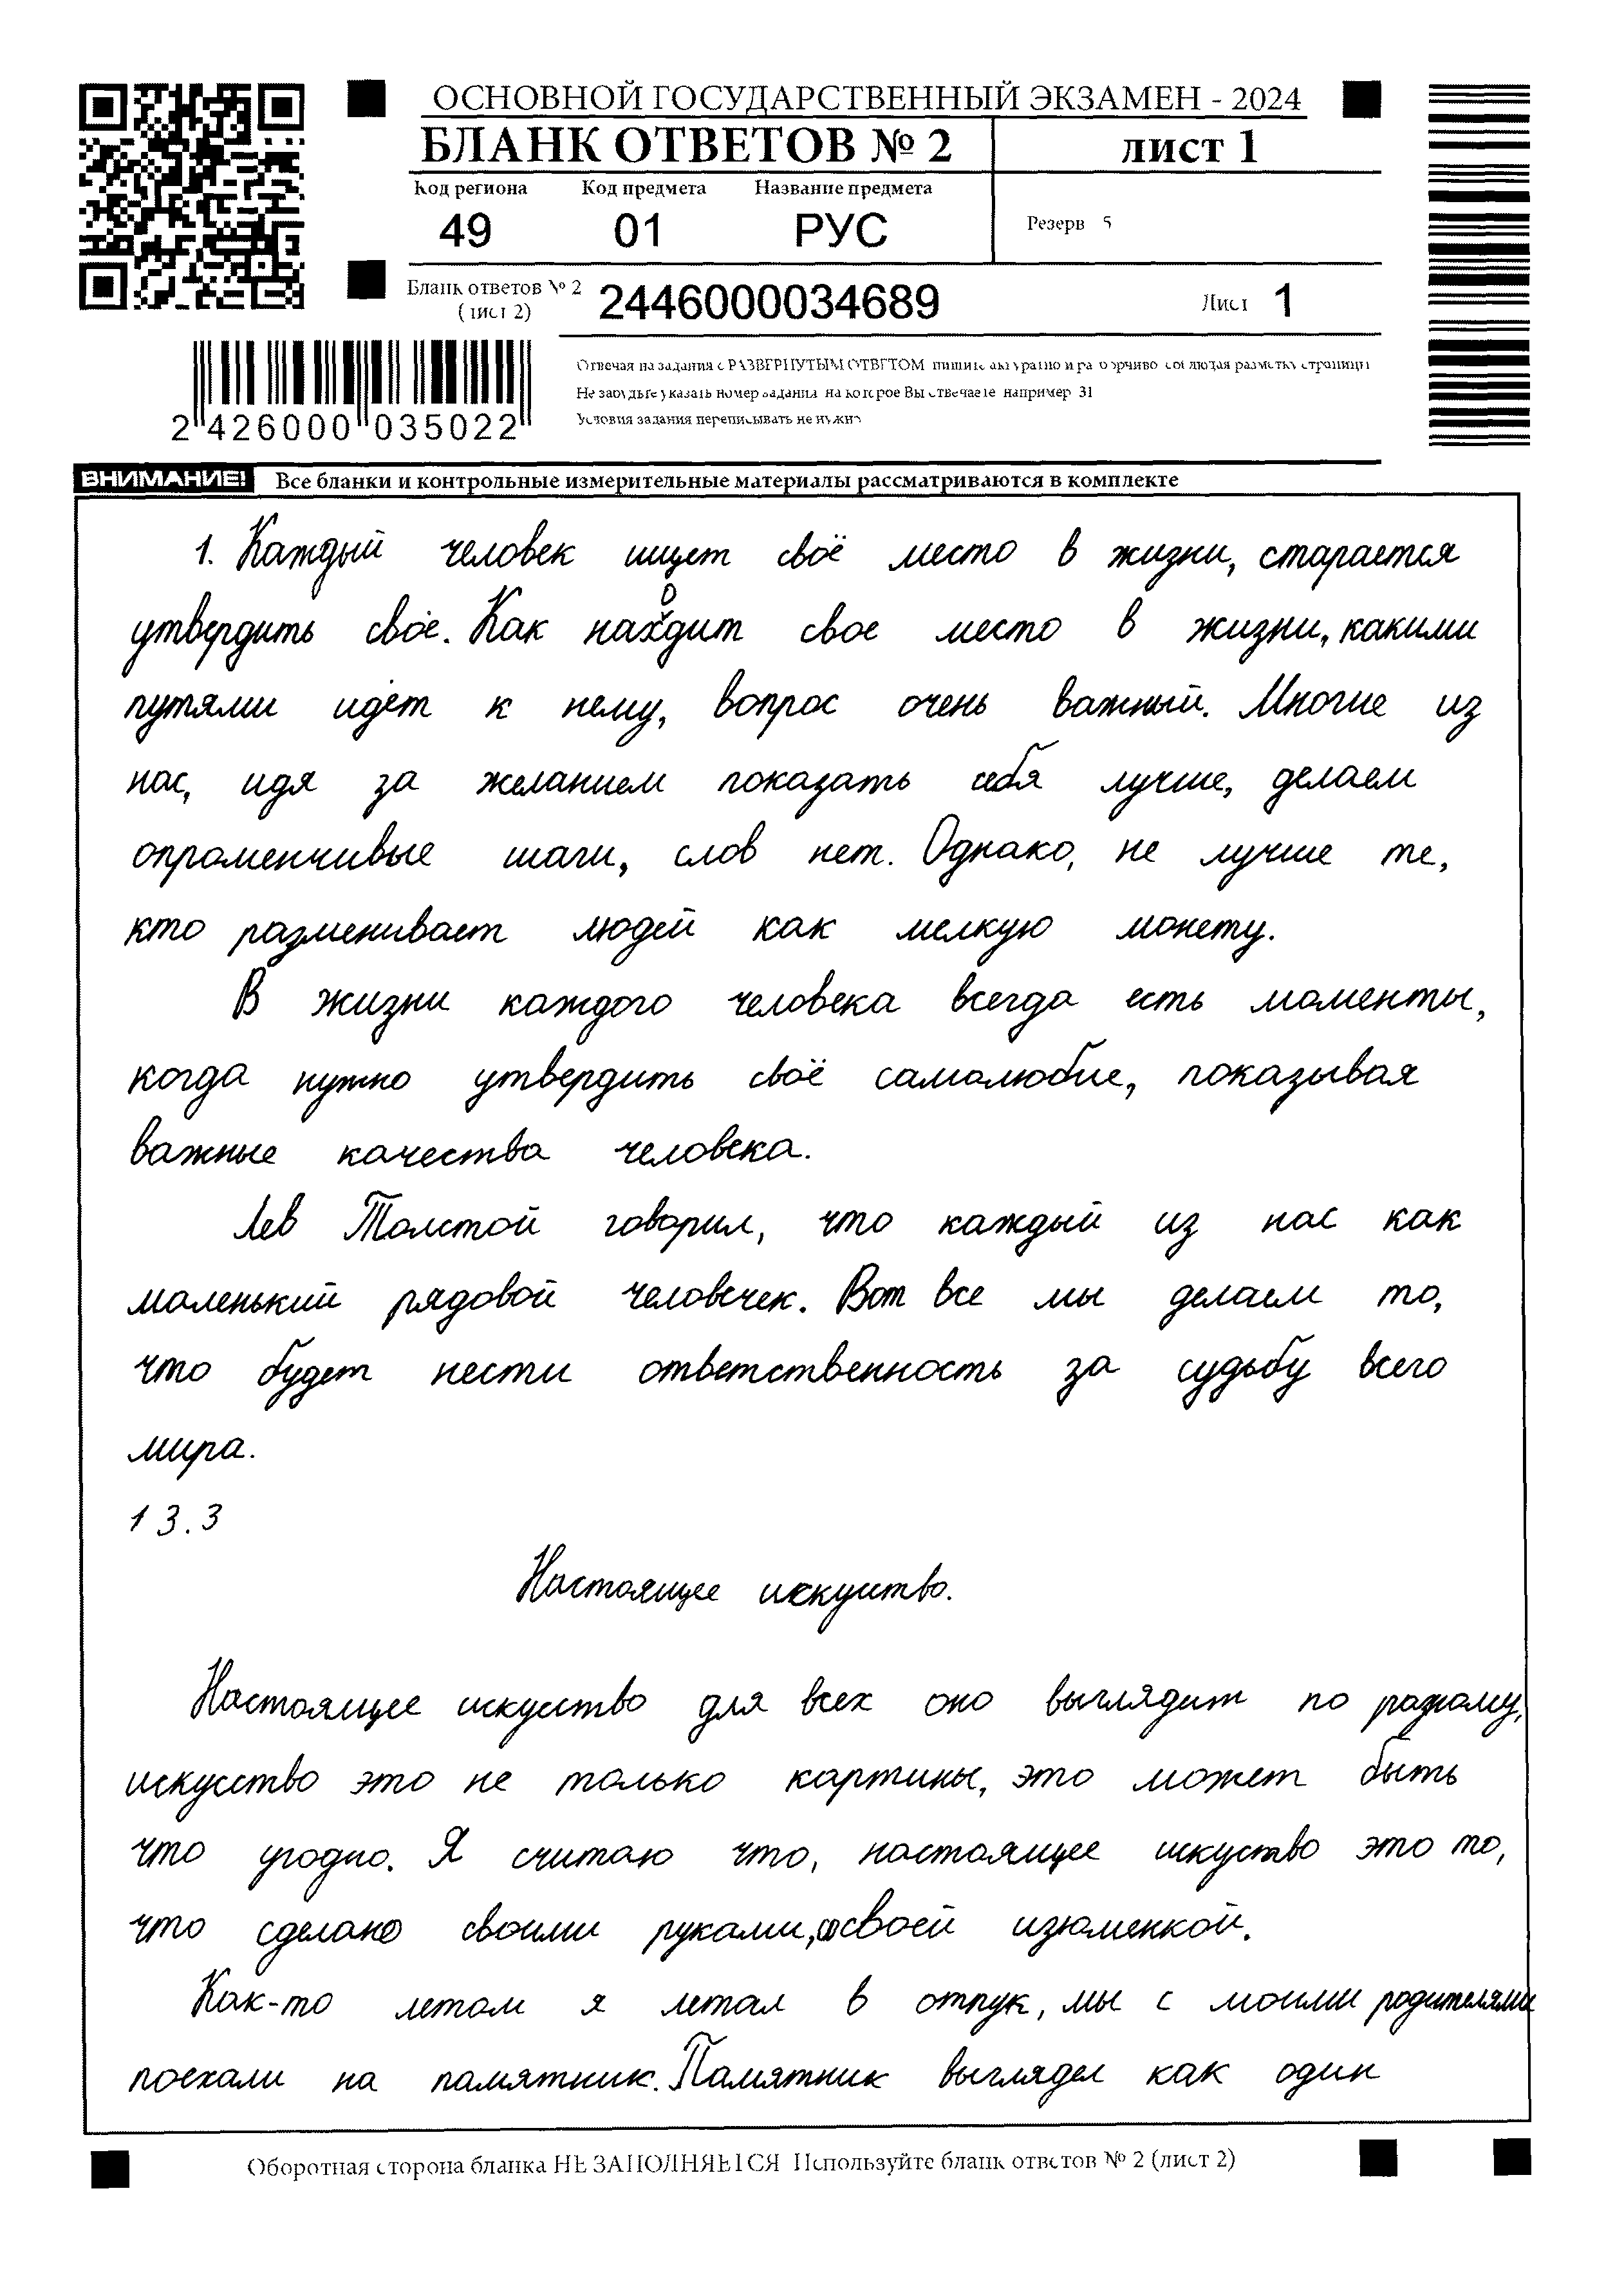 ОСНОВНОЙ ГОСУДАРСТВЕННЫЙ ЭКЗАМЕН - 2024
БЛАНК ОТВЕТОВ № 2
лист 1
Код региона Код предмета Название предмета
49 01 РУС
Резерв 5
Бланк ответов № 2
(лист 2)
2446000034689
Лист 1
Отвечая на задания с РАЗВЕРНУТЫМ ОТВЕТОМ пишите аккуратно и разборчиво соблюдая разметку страницы
Не забудьте указать номер задания на которое Вы отвечаете например 31
Условия задания переписывать не нужно
2 426000 035022
ВНИМАНИЕ! Все бланки и контрольные измерительные материалы рассматриваются в комплекте
1. Каждый человек ищет своё место в жизни, старается
утвердить своё. Как находит свое место в жизни, какими
путями идёт к нему, вопрос очень важный. Многие из
нас, идя за желанием показать себя лучше, делаем
опроменчивые шаги, слов нет. Однако, не лучше те,
кто разменивает людей как мелкую монету.
В жизни каждого человека всегда есть моменты,
когда нужно утвердить своё самолюбие, показывая
важные качества человека.
Лев Толстой говорил, что каждый из нас как
маленький рядовой человечек. Вот все мы делаем то,
что будет нести ответственность за судьбу всего
мира.
13.3
Настоящее искуство.
Настоящее искусство для всех оно выглядит по разному,
искусство это не только картины, это может быть
что угодно. Я считаю что, настоящее искуство это то,
что сделано своими руками, со своей изюменкой.
Как-то летом я летал в отпук, мы с моими родителями
поехали на памятник. Памятник выглядел как один
Оборотная сторона бланка НЕ ЗАПОЛНЯЕТСЯ Используйте бланк ответов № 2 (лист 2)